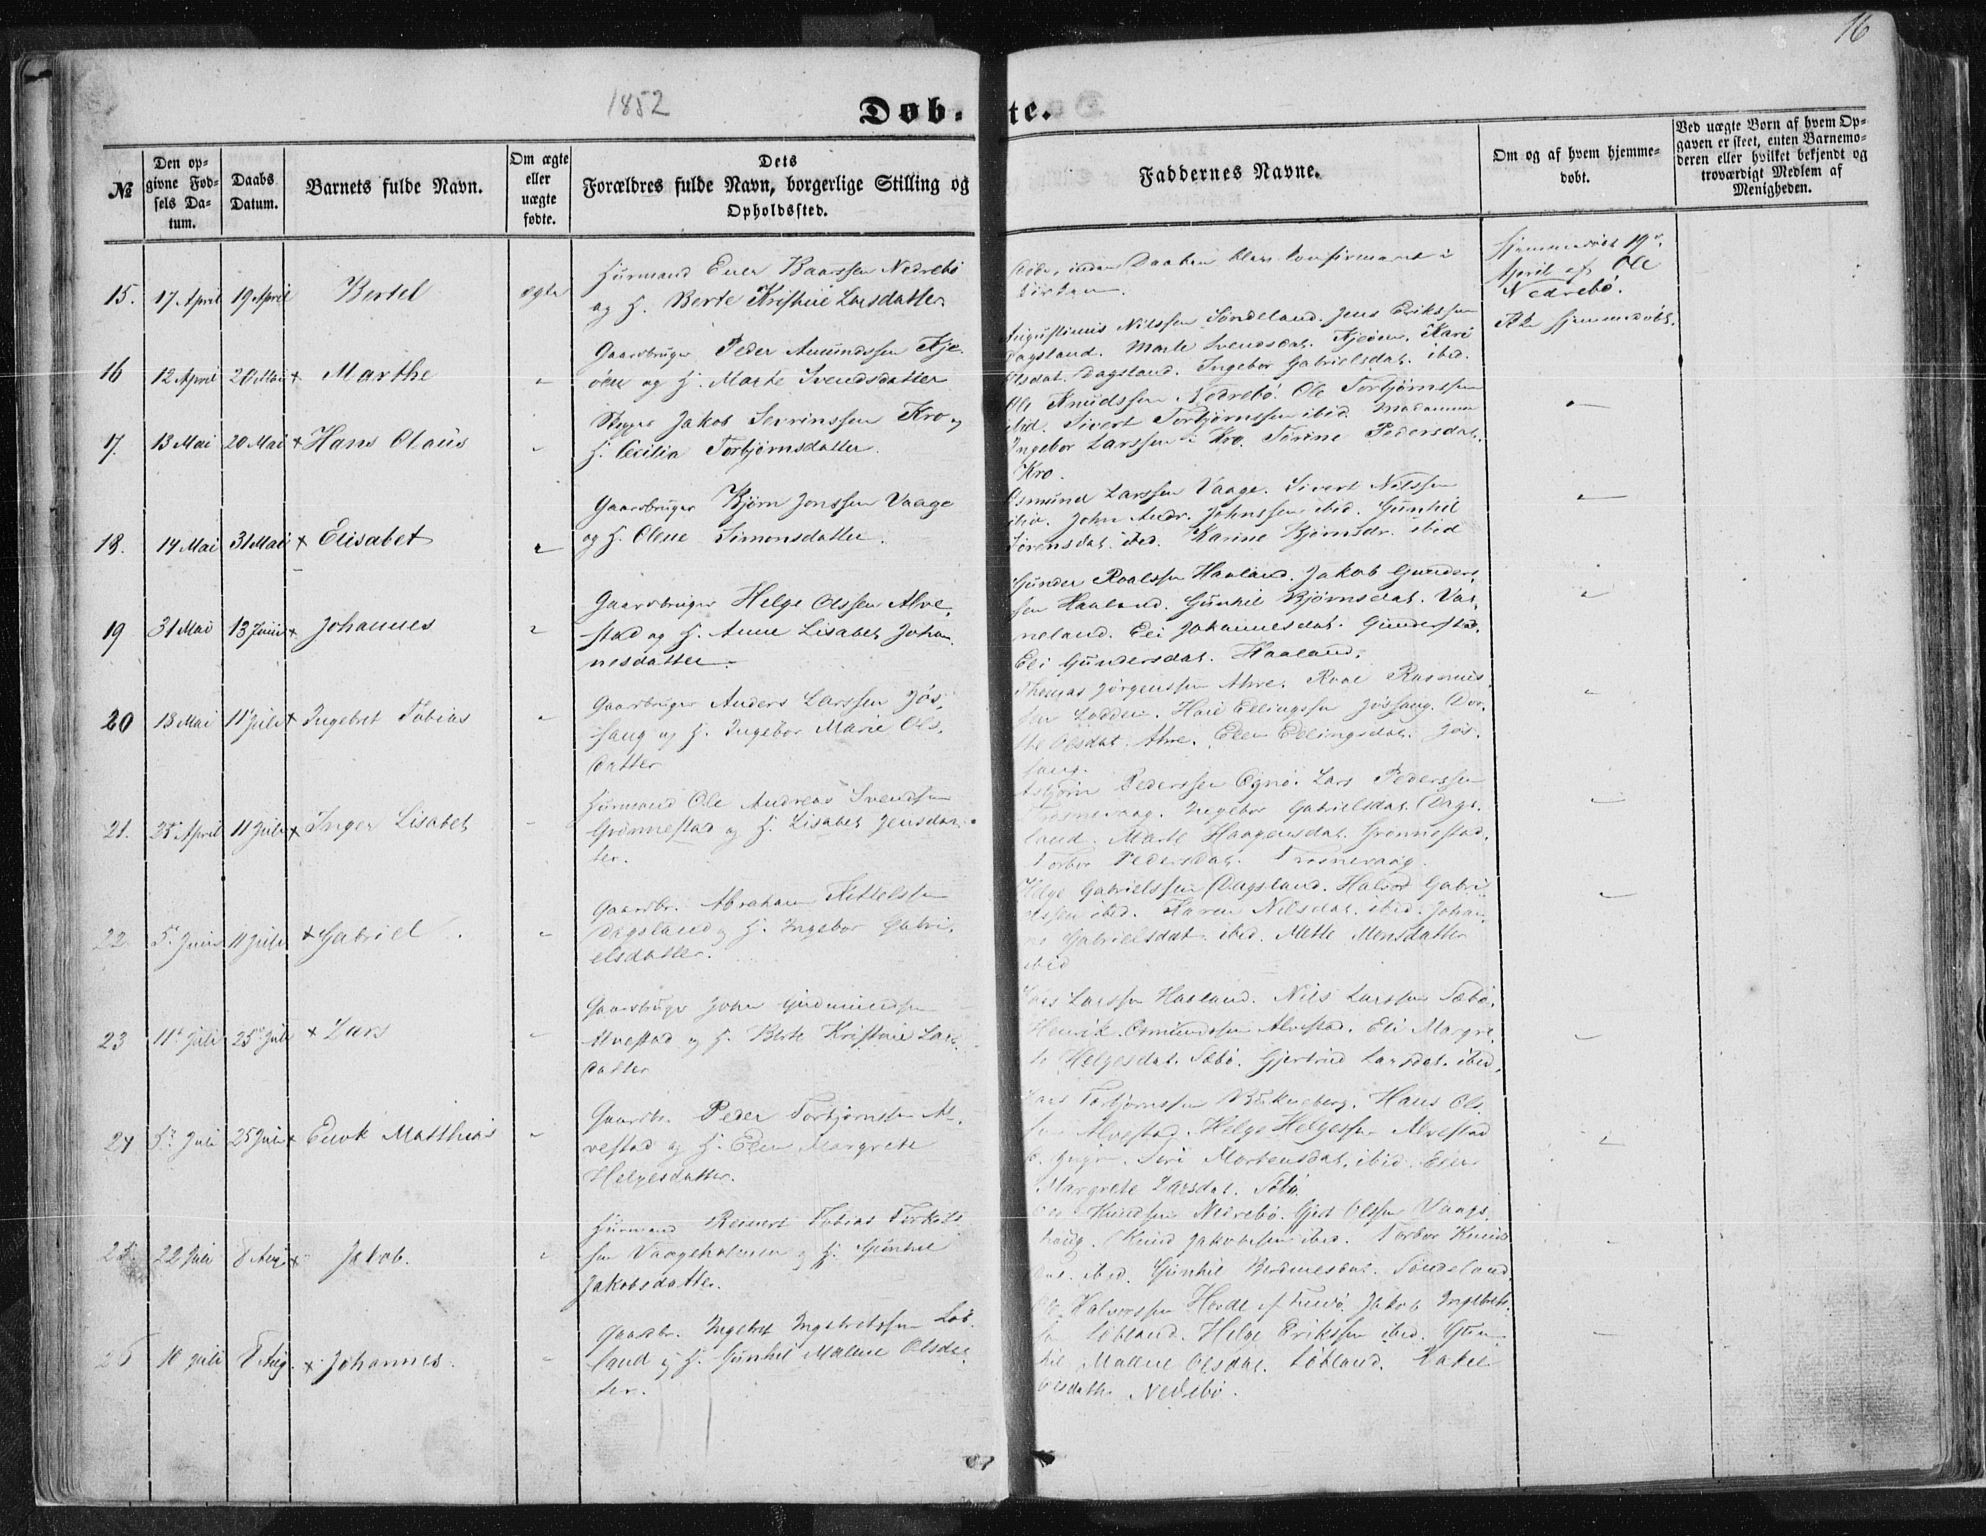 16
1852
Døb- te.
№
Den op-
givne Fød-
sels Da-
tum.
Daabs
Datum.
Barnets fulde Navn.
Om ægte
eller
uægte
fødte.
Dets
Forældres fulde Navn, borgerlige Stilling og
Opholdssted.
Faddernes Navne.
Om og af hvem hjemme-
døbt.
Ved uægte Børn af hvem Op-
gaven er skeet, enten Barnemo-
deren eller hvilket bekjendt og
troværdigt Medlem af
Menigheden.
15. 17 April 19 April Bertel ægte
Huusmand Baarsen Nedrebö
og H. Berte Kristine Larsdatter
Døde, inden Daaben blev confirmeret i
Kirken.
Hjemmedöbt 19de
April af Ole
Nedrebö.
16 12 April 20 Mai + Marthe "
Gaardbruger Peder Amundssen Kje-
öen og H. Marte Svendsdatter
Augustinus Nilssen Söndeland. Jens Erikssen
Dagsland. Marte Svendsdat. Kjeöen. Kari
Olsdat. Dagsland. Ingebor Gabrielsdat. ibid.
Ikke hjemmedöbt.
17. 13 Mai 20 Mai + Hans Olaus "
Jakob Severinssen Kro og
H. Cecilia Torbjörnsdatter.
Ole Knudssen Nedrebö. Ole Torbjörnssen
ibid. Sivert Torbjörnssen ibid. Madamme
Ingebor Larssen i Kro. Serine Pedersdat.
Kro.
"
18. 14 Mai 31 Mai + Elisabet "
Gaardbruger Bjørn Jonssen Vaage
og H. Olene Simonsdatter.
Osmund Larssen Vaage. Sivert Nilssen
ibid. John Andr. Johnssen ibid. Gunhil
Sörensdat. ibid. Karine Bjørnsdr. ibid
"
19 31 Mai 13 Juni + Johannes "
Gaardbruger Helge Olssen Alve-
stad og H. Anne Lisabet Johan-
nesdatter.
Gunder Roalssen Haaland. Jakob Gunders-
sen Haaland. Gunhil Bjørnsdat. Var-
neland. Eli Johannesdat. Gunderstad.
Eli Gundersdat. Haaland.
"
20 18 Mai 11 Juli + Ingebret Tobias "
Gaardbruger Anders Larssen Jös-
sang og H. Ingebor Marie Ols-
datter
Thomas Jörgenssen Ahre. Roal Rasmus-
sen Lodden. Hoie Ellingssen Jössang. Dor-
the Olsdat. Ahre. Elen Ellingsdat. Jös-
sang.
"
21. 25 April 11 Juli + Inger Lisabet "
Huusmand Ole Andreas Svendsen
Grønnestad og H. Lisabet Jensdat-
ter.
Asbjörn Pederssen Ognö. Lars Pederssen
Trosnevaag. Ingebor Gabrielsdat. Dags-
land. Marte Haagensdat. Grønnestad.
Torbor Pedersdat. Trosnevaag.
"
22 5te Juni 11 Juli + Gabriel "
Gaardbr. Abraham Kittelssen
Dagsland og H. Ingebor Gabri-
elsdatter.
Helge Gabrielssen Dagsland. Halvor Gabri-
elssen ibid. Karen Nilsdat. ibid. Johan-
na Gabrielsdat. ibid. Mette Monsdatter
ibid
"
23 11te Juli 25de Juli + Lars "
Gaardbruger John Gudmundsen
Alvestad og H. Berte Kristine Lars-
datter
Lars Larssen Haaland. Nils Larssen Sæbö.
Henrik Osmundssen Alvestad. Eli Margre-
te Helgesdat. Sæbö. Gjertrud Larsdat. ibid.
"
24 5te Juli 25 Juli + Enok Matthias "
Gaardbr. Peder Torbjörnsen Al-
vestad og H. Elen Margrete
Helgesdatter.
Lars Torbjörnssen Hans Ols-
sen Alvestad. Helge Helgessen Alvestad
Siri Mortensdat. ibid. Elen
Margrete Larsdat. Sæbö
"
25 22 Juli 8 Aug + Jakob. "
Huusmand Reinert Tobias Torkils-
sen Vaageholmen og H. Gunhil
Jakobsdatter.
Ole Knudsen Nedrebö. Gjert Olssen Vaags-
haug. Knud Jakobssen ibid. Torbor Knuds-
dat. ibid. Gunhil Söndeland.
"
26 10 Juli 8 Aug. + Johannes. "
Gaardbr. Ingebret Ingebretssen Löb-
land og H. Gunhil Malene Olsdat-
ter.
Ole Halvorssen Jakob Ingebrets-
sen Löbland. Helge Erikssen ibid. Gun-
hil Malene Olsdat. Löbland. Rakel
Olsdatter Nedrebö.
"